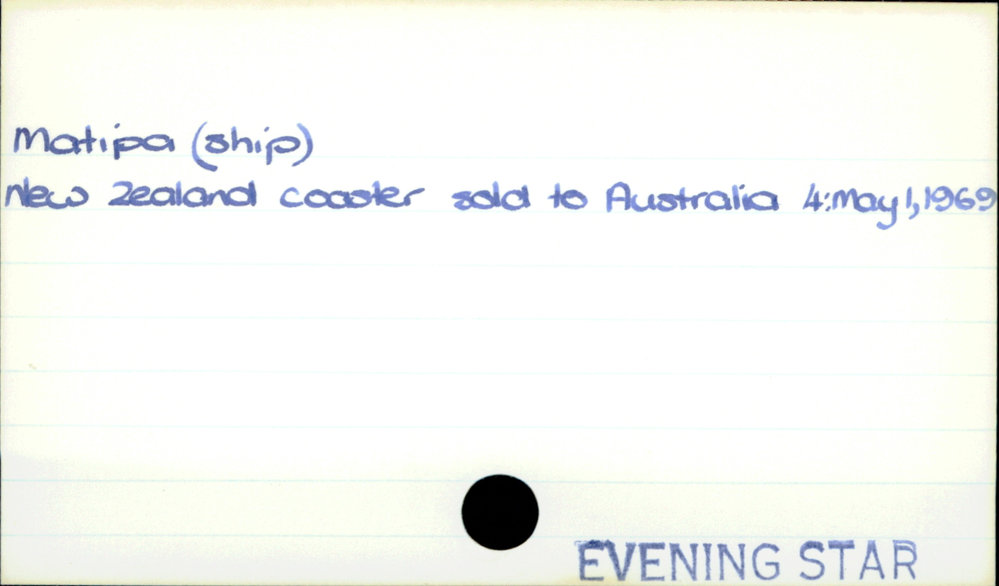 Matipa (ship)
New Zealand coaster sold to Australia 4:May 1, 1969
EVENING STAR